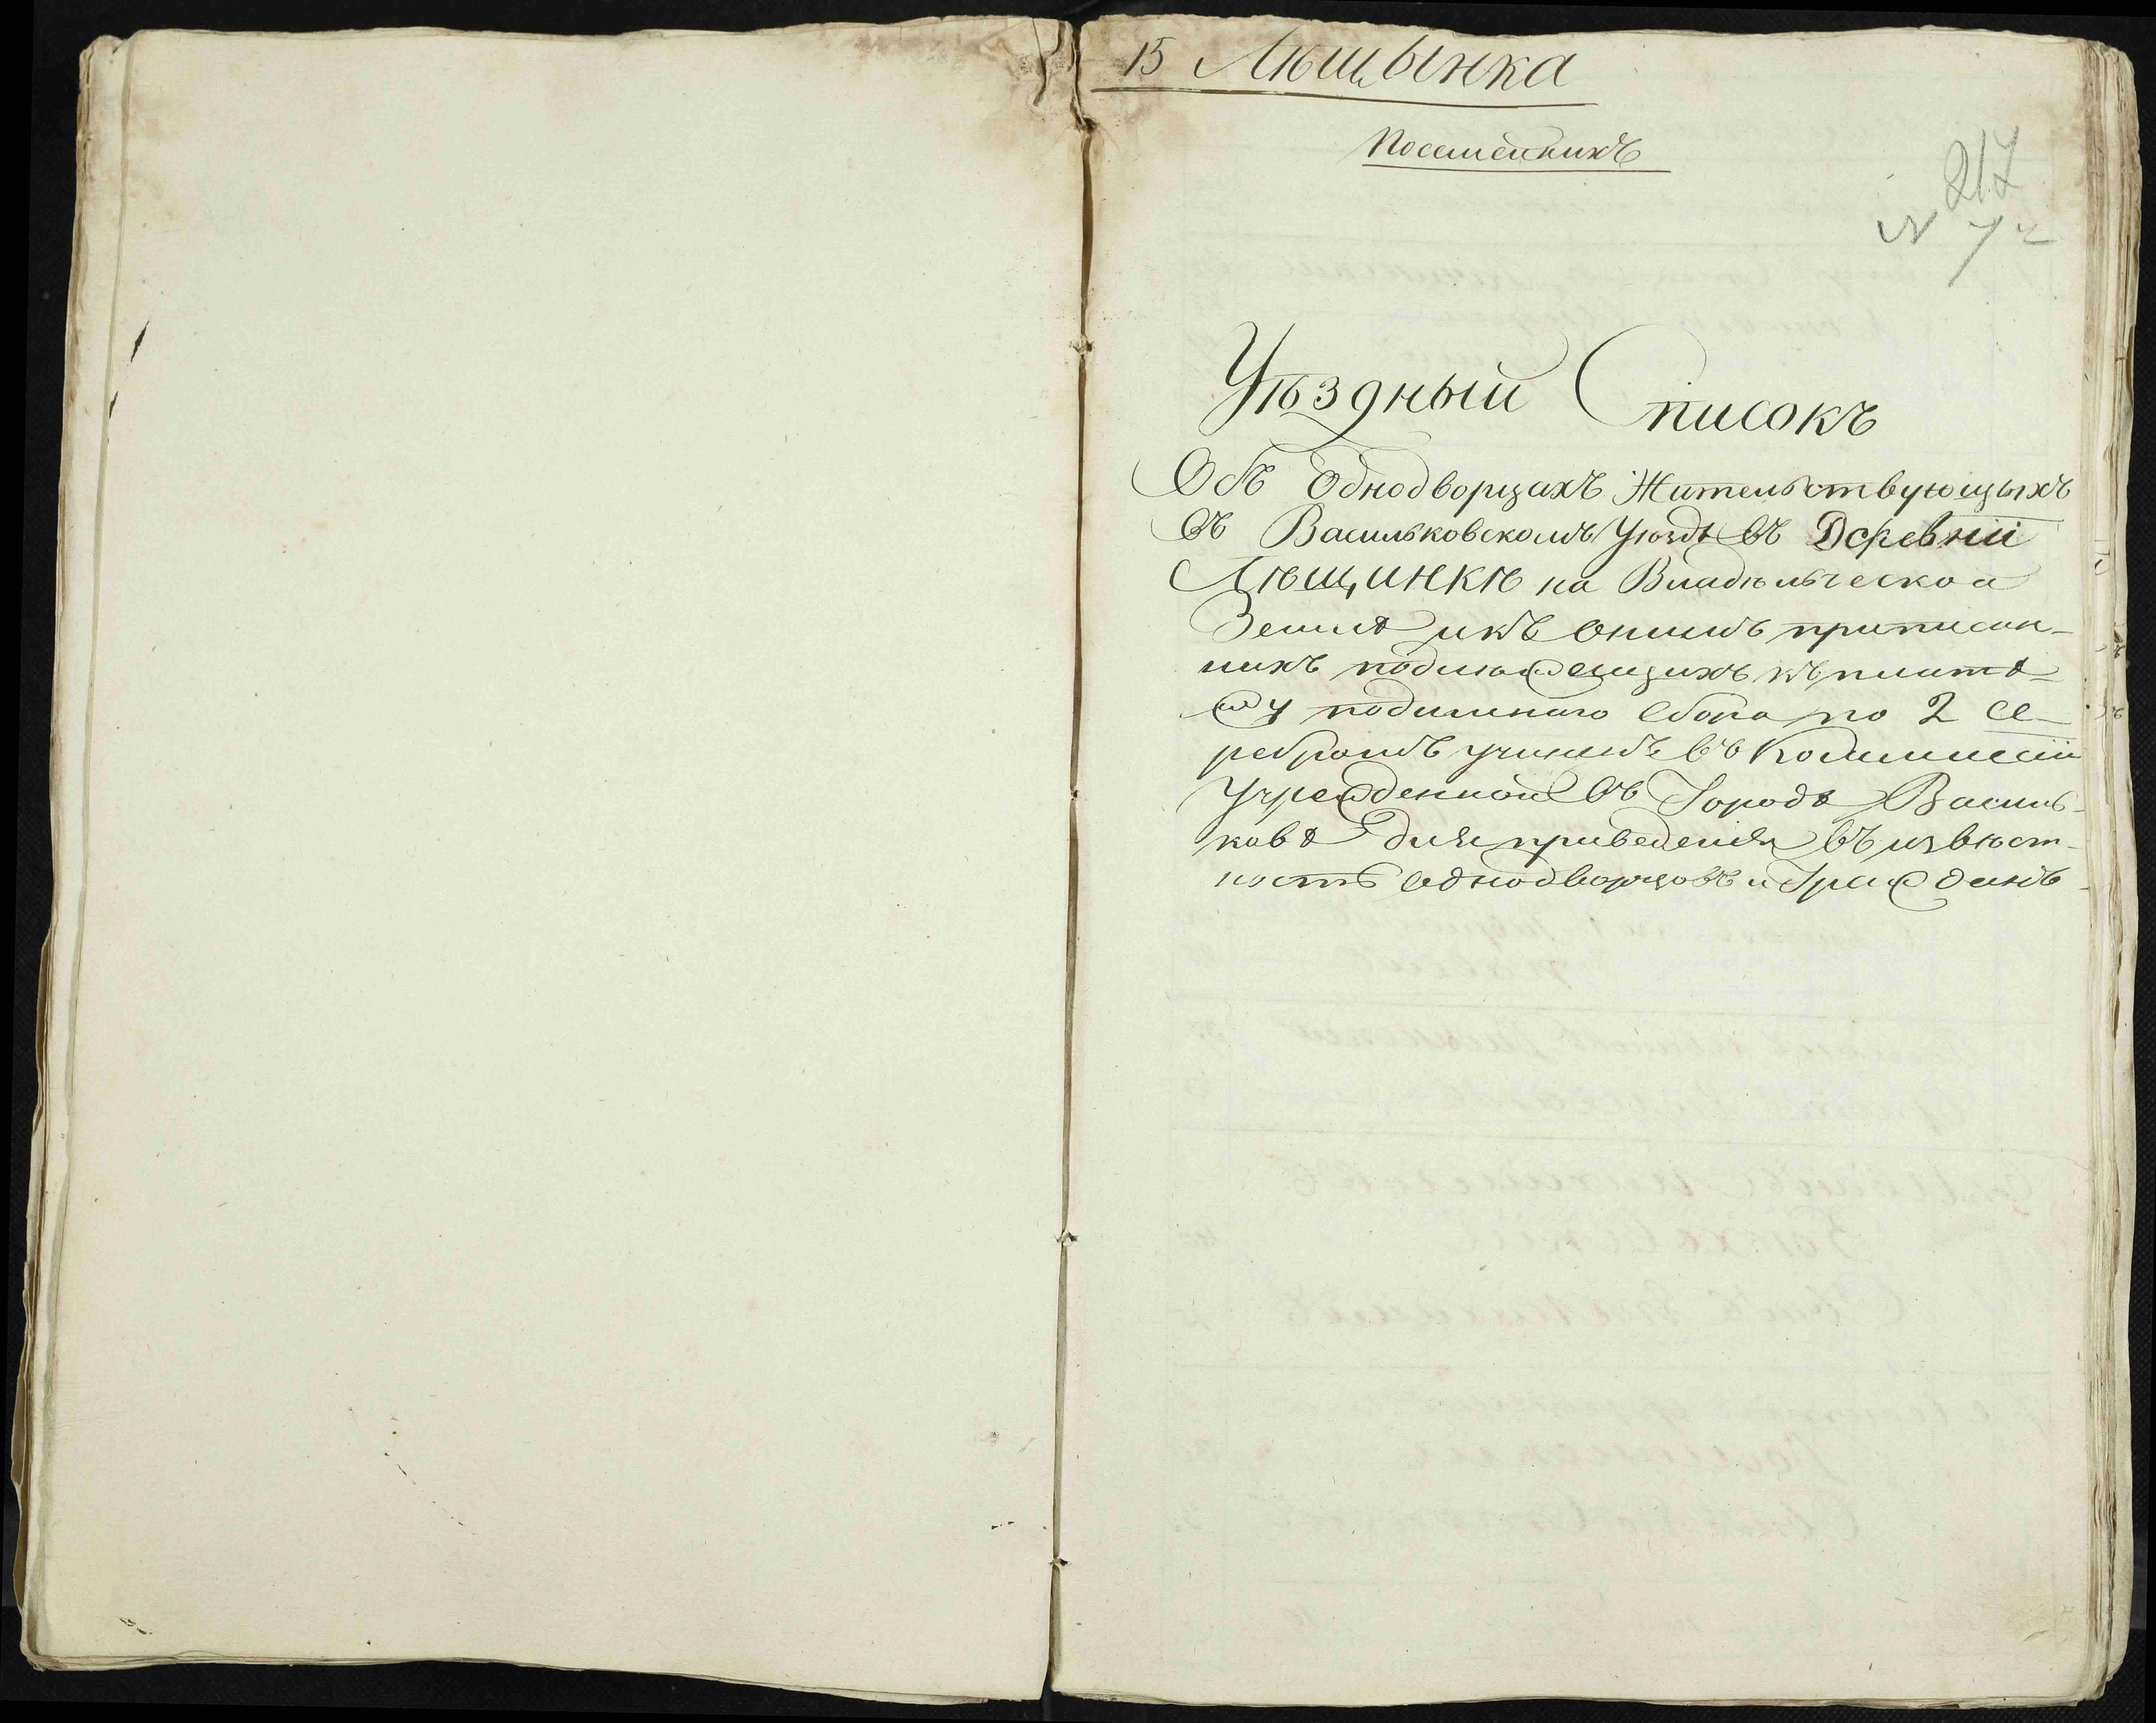 15 Лѣщынка
Посемейникъ
217
Уѣздный Списокъ
Объ Однодворцахъ Жительствующыхъ
въ Васильковскомъ Уѣздѣ въ Деревни
Лѣщинкѣ на Владѣльческой
Землѣ и къ онимъ приписан-
нихъ подлежащихъ къ плате-
жу подимнаго сбора по 2 се-
ребромъ учиненъ въ Коммиссіи
Учрежденной въ Городѣ Василь-
ковѣ для приведенія въ извѣст-
ность однодворцовъ и Гражданъ